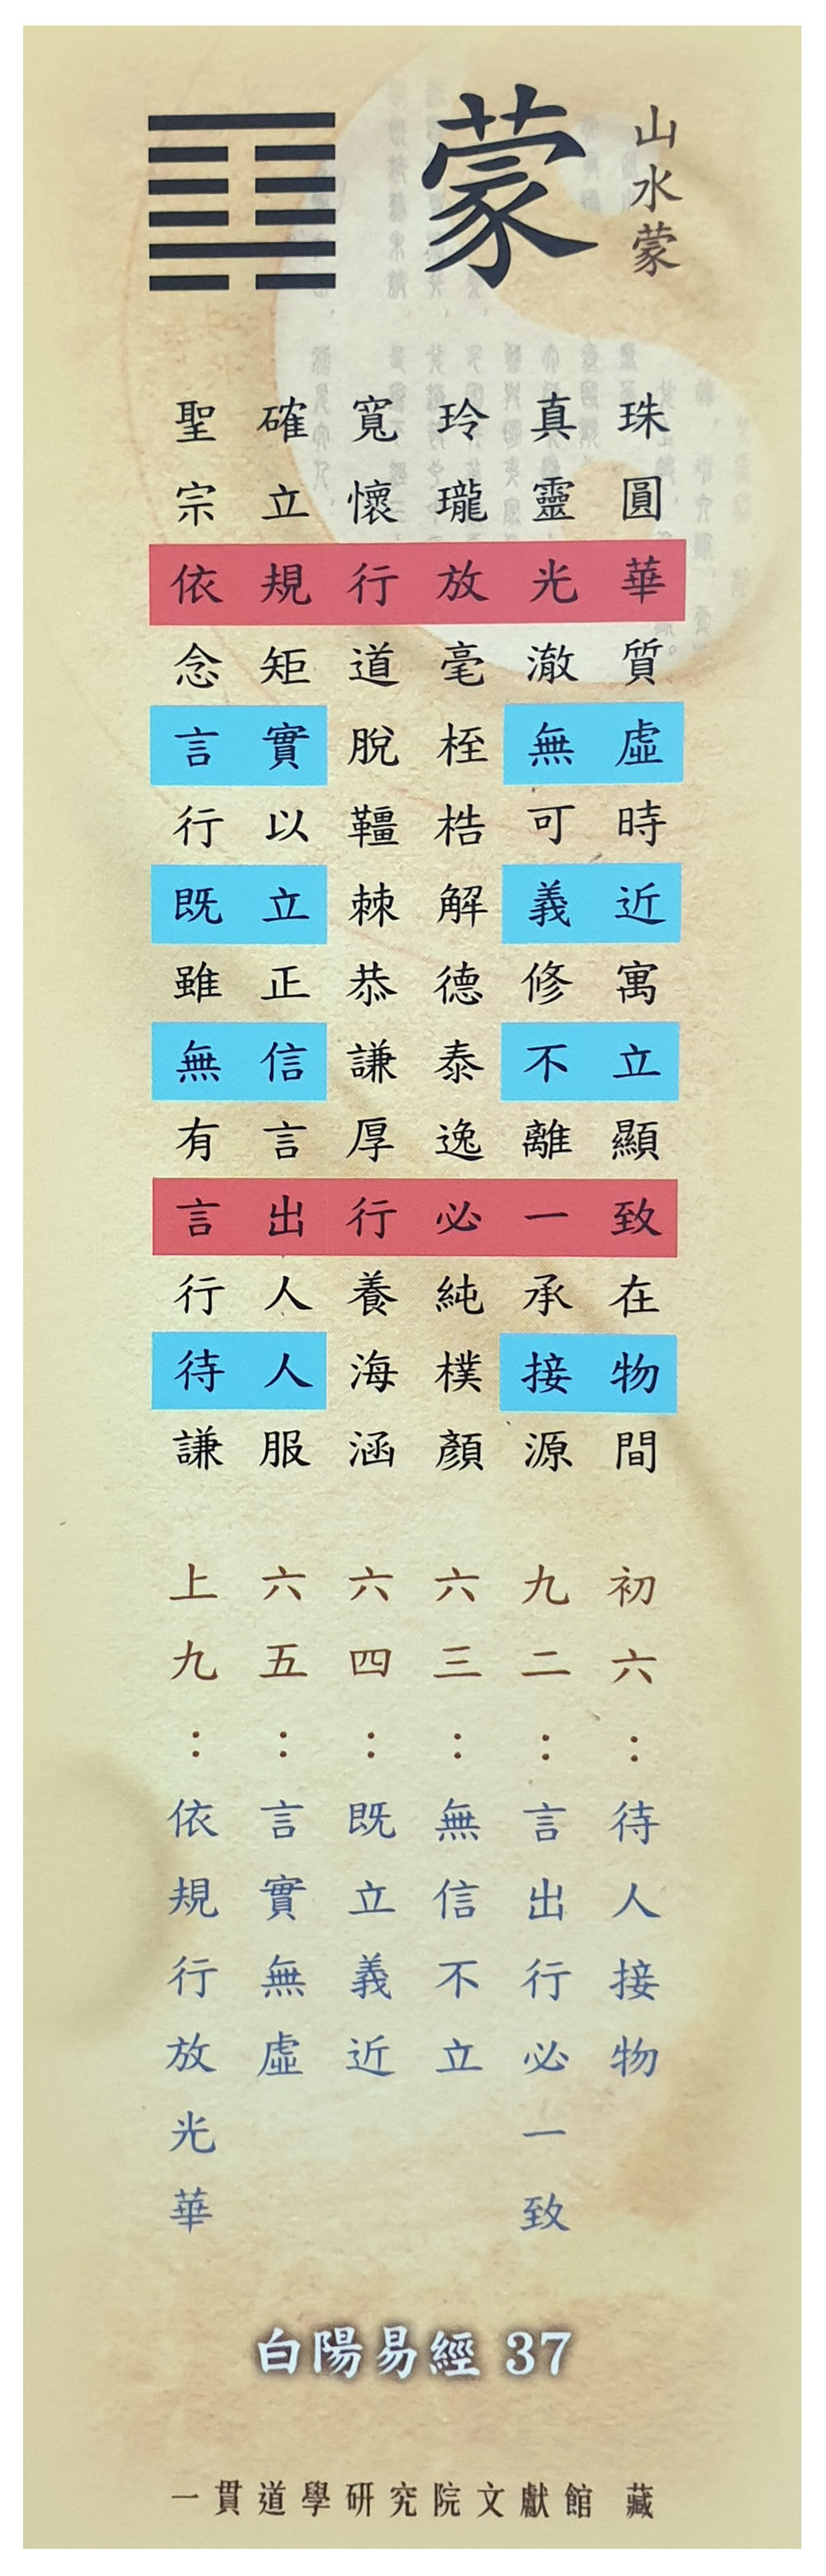 山水蒙
蒙
珠圓華質虛時近寓立顯致在物間
真靈光澈無可義修不離一承接源
玲瓏放毫桎梏解德泰逸必純樸顏
寬懷行道脫韁棘恭謙厚行養海涵
確立規矩實以立正信言出人人服
聖宗依念言行既雖無有言行待謙
初六：待人接物
九二：言出行必一致
六三：無信不立
六四：既立義近
六五：言實無虛
上九：依規行放光華
白陽易經 37
一貫道學研究院文獻館 藏